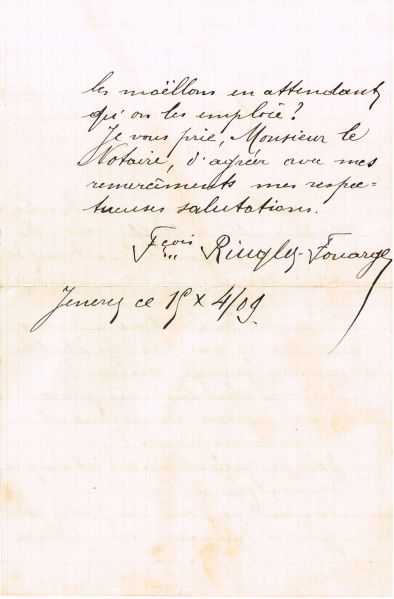 les moëllons en attendant
qu'on les emploie?
Je vous prie, Monsieur le
Notaire, d'agréer avec mes
remercîments mes respec=
tueuses salutations.
Fçois Ringlet-Fouarge
Jeneret ce 15 x 4/09.